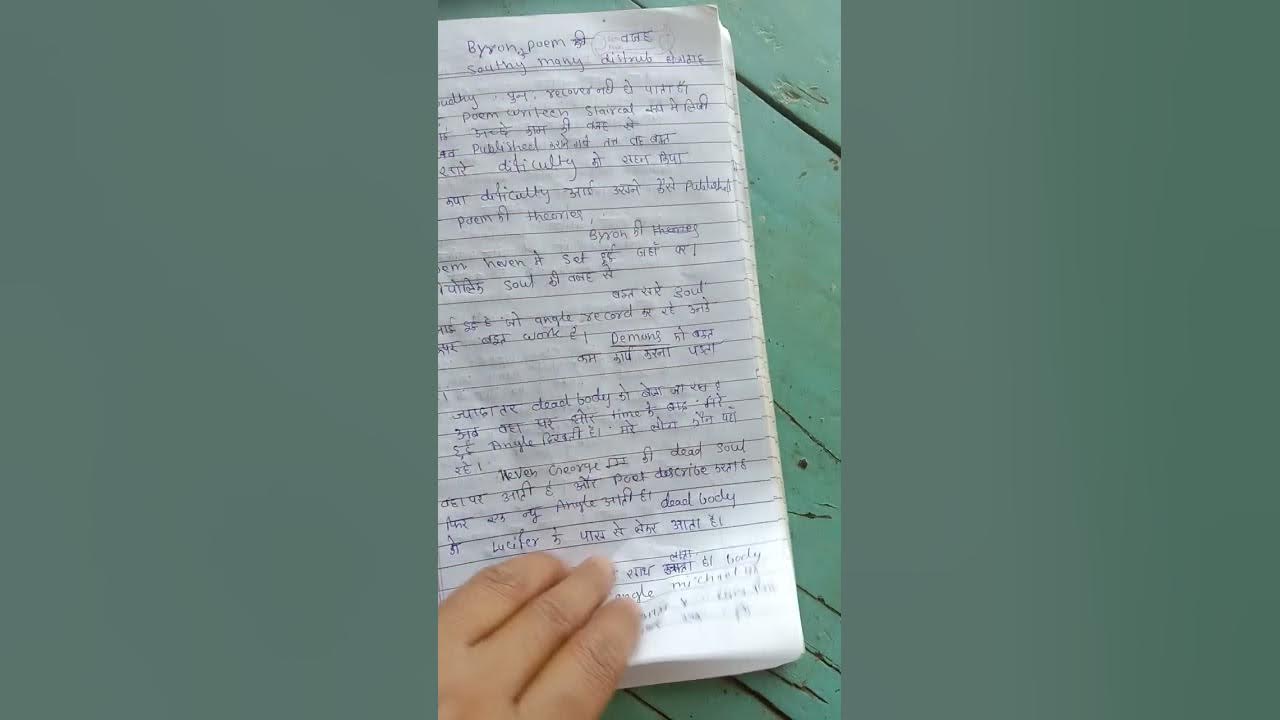 Byron, poem की वजह
Southy many distrub होजाता
oudhy पुनः recover नही हो पाता है।
Poem writeen Staircal रूप मे लिखी
अच्छे काम की वजह से
Published करने गये तब वह बहुत
सारे dificulty को सहन किया
क्या dificulty आई उसने कैसे Published
poem की theories,
Byron की theories
oem heven मे set हुई जहाँ पर।
soul की वजह से
बहुत सारे soul
हुई है जो angle record कर रहे उनके
बहुत work है। Demons को बहुत
कम कार्य करना पड़ता
ज्यादातर dead body को भेजा जा रहा है
अब वहा पर और time के बाद मरे
हुई Angle दिखती है। मरे लोग कौन यहाँ
रहे।
Heven George III की dead soul
वहा पर आती है और Poet describe करता है
फिर एक न्यू Angle आती है। dead body
को Lucifer के पास से लेकर आता है।
साथ लाता है। body
angle michael